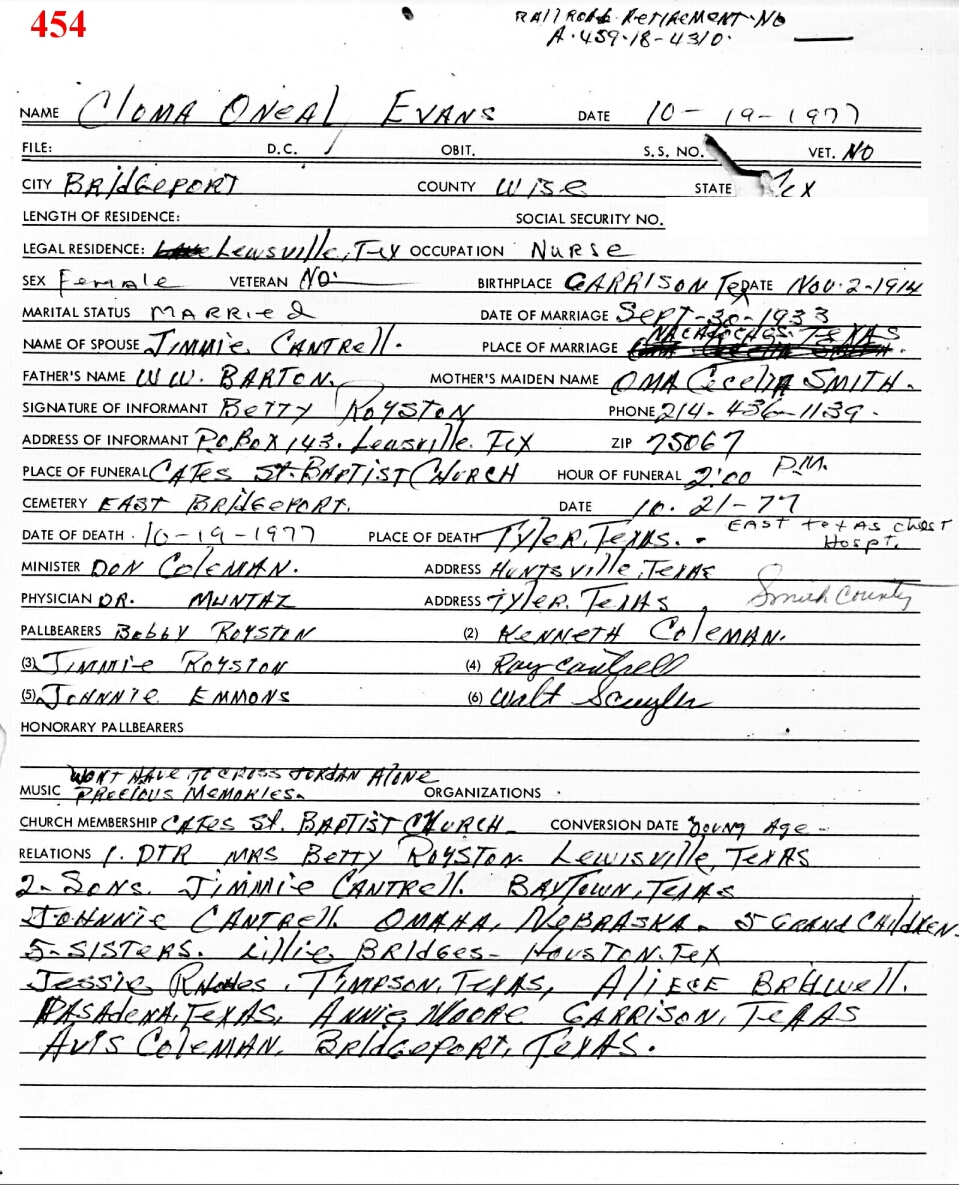 454
RAIlRoad RetIREMENT. No
A. 459-18-4310.
NAME Cloma Oneal Evans DATE 10-19-1977
FILE: D.C. / OBIT. S.S. NO. VET. NO
CITY BRIdgepoRT COUNTY Wise STATE Tex
LENGTH OF RESIDENCE: SOCIAL SECURITY NO.
LEGAL RESIDENCE: Lewsville, Tex OCCUPATION Nurse
SEX Female VETERAN NO. BIRTHPLACE GARRISON Tex DATE Nov. 2-1914
MARITAL STATUS MARRied DATE OF MARRIAGE Sept-30-1933
NAME OF SPOUSE Jimmie Cantrell. PLACE OF MARRIAGE NACADOCHGS. TEXAS
FATHER'S NAME W.W. BARTON. MOTHER'S MAIDEN NAME OMA Cecelia SMITH.
SIGNATURE OF INFORMANT Betty Royston PHONE 214-436-1139.
ADDRESS OF INFORMANT P.O. Box 143. Lewsville. Tex ZIP 75067
PLACE OF FUNERAL CATES St. BAPTIST CHURCH HOUR OF FUNERAL 2:00 P.M.
CEMETERY EAST BRIdgepoRT. DATE 10-21-77
DATE OF DEATH. 10-19-1977 PLACE OF DEATH Tyler, Texas. - EAST texas chest
Hospt.
MINISTER DON ColeMAN. ADDRESS HUNTSville, Texas
PHYSICIAN DR. MUNTAZ ADDRESS Tyler, Texas, Smith County
PALLBEARERS Bobby Royston (2) KENNETH ColeMAN.
(3) Jimmie Royston (4) Ray Cantrell
(5) Johnnie EMMONS (6) Walt Scuyler
HONORARY PALLBEARERS
WONT HAVE TO CROSS JORDAN AloNe
MUSIC PRecious MeMORies. ORGANIZATIONS
CHURCH MEMBERSHIP CATES St. BAPTIST CHURCH CONVERSION DATE Young Age -
RELATIONS 1. DTR MRS Betty Royston. Lewisville, Texas
2-Sons. Jimmie Cantrell. BAYTOWN, Texas
Johnnie Cantrell. OMAHA, NEBRASKA. 5 GRAND CHildREN.
5-SISTERS. Lillie BRIdges- HOUSTON. Tex
Jessie Rhodes. Timpson, Texas, Aliece BRIdwell.
PASAdeNA, Texas, ANNie Moore GARRISON, Texas
Avis ColeMAN. BRIdgepoRT, Texas.